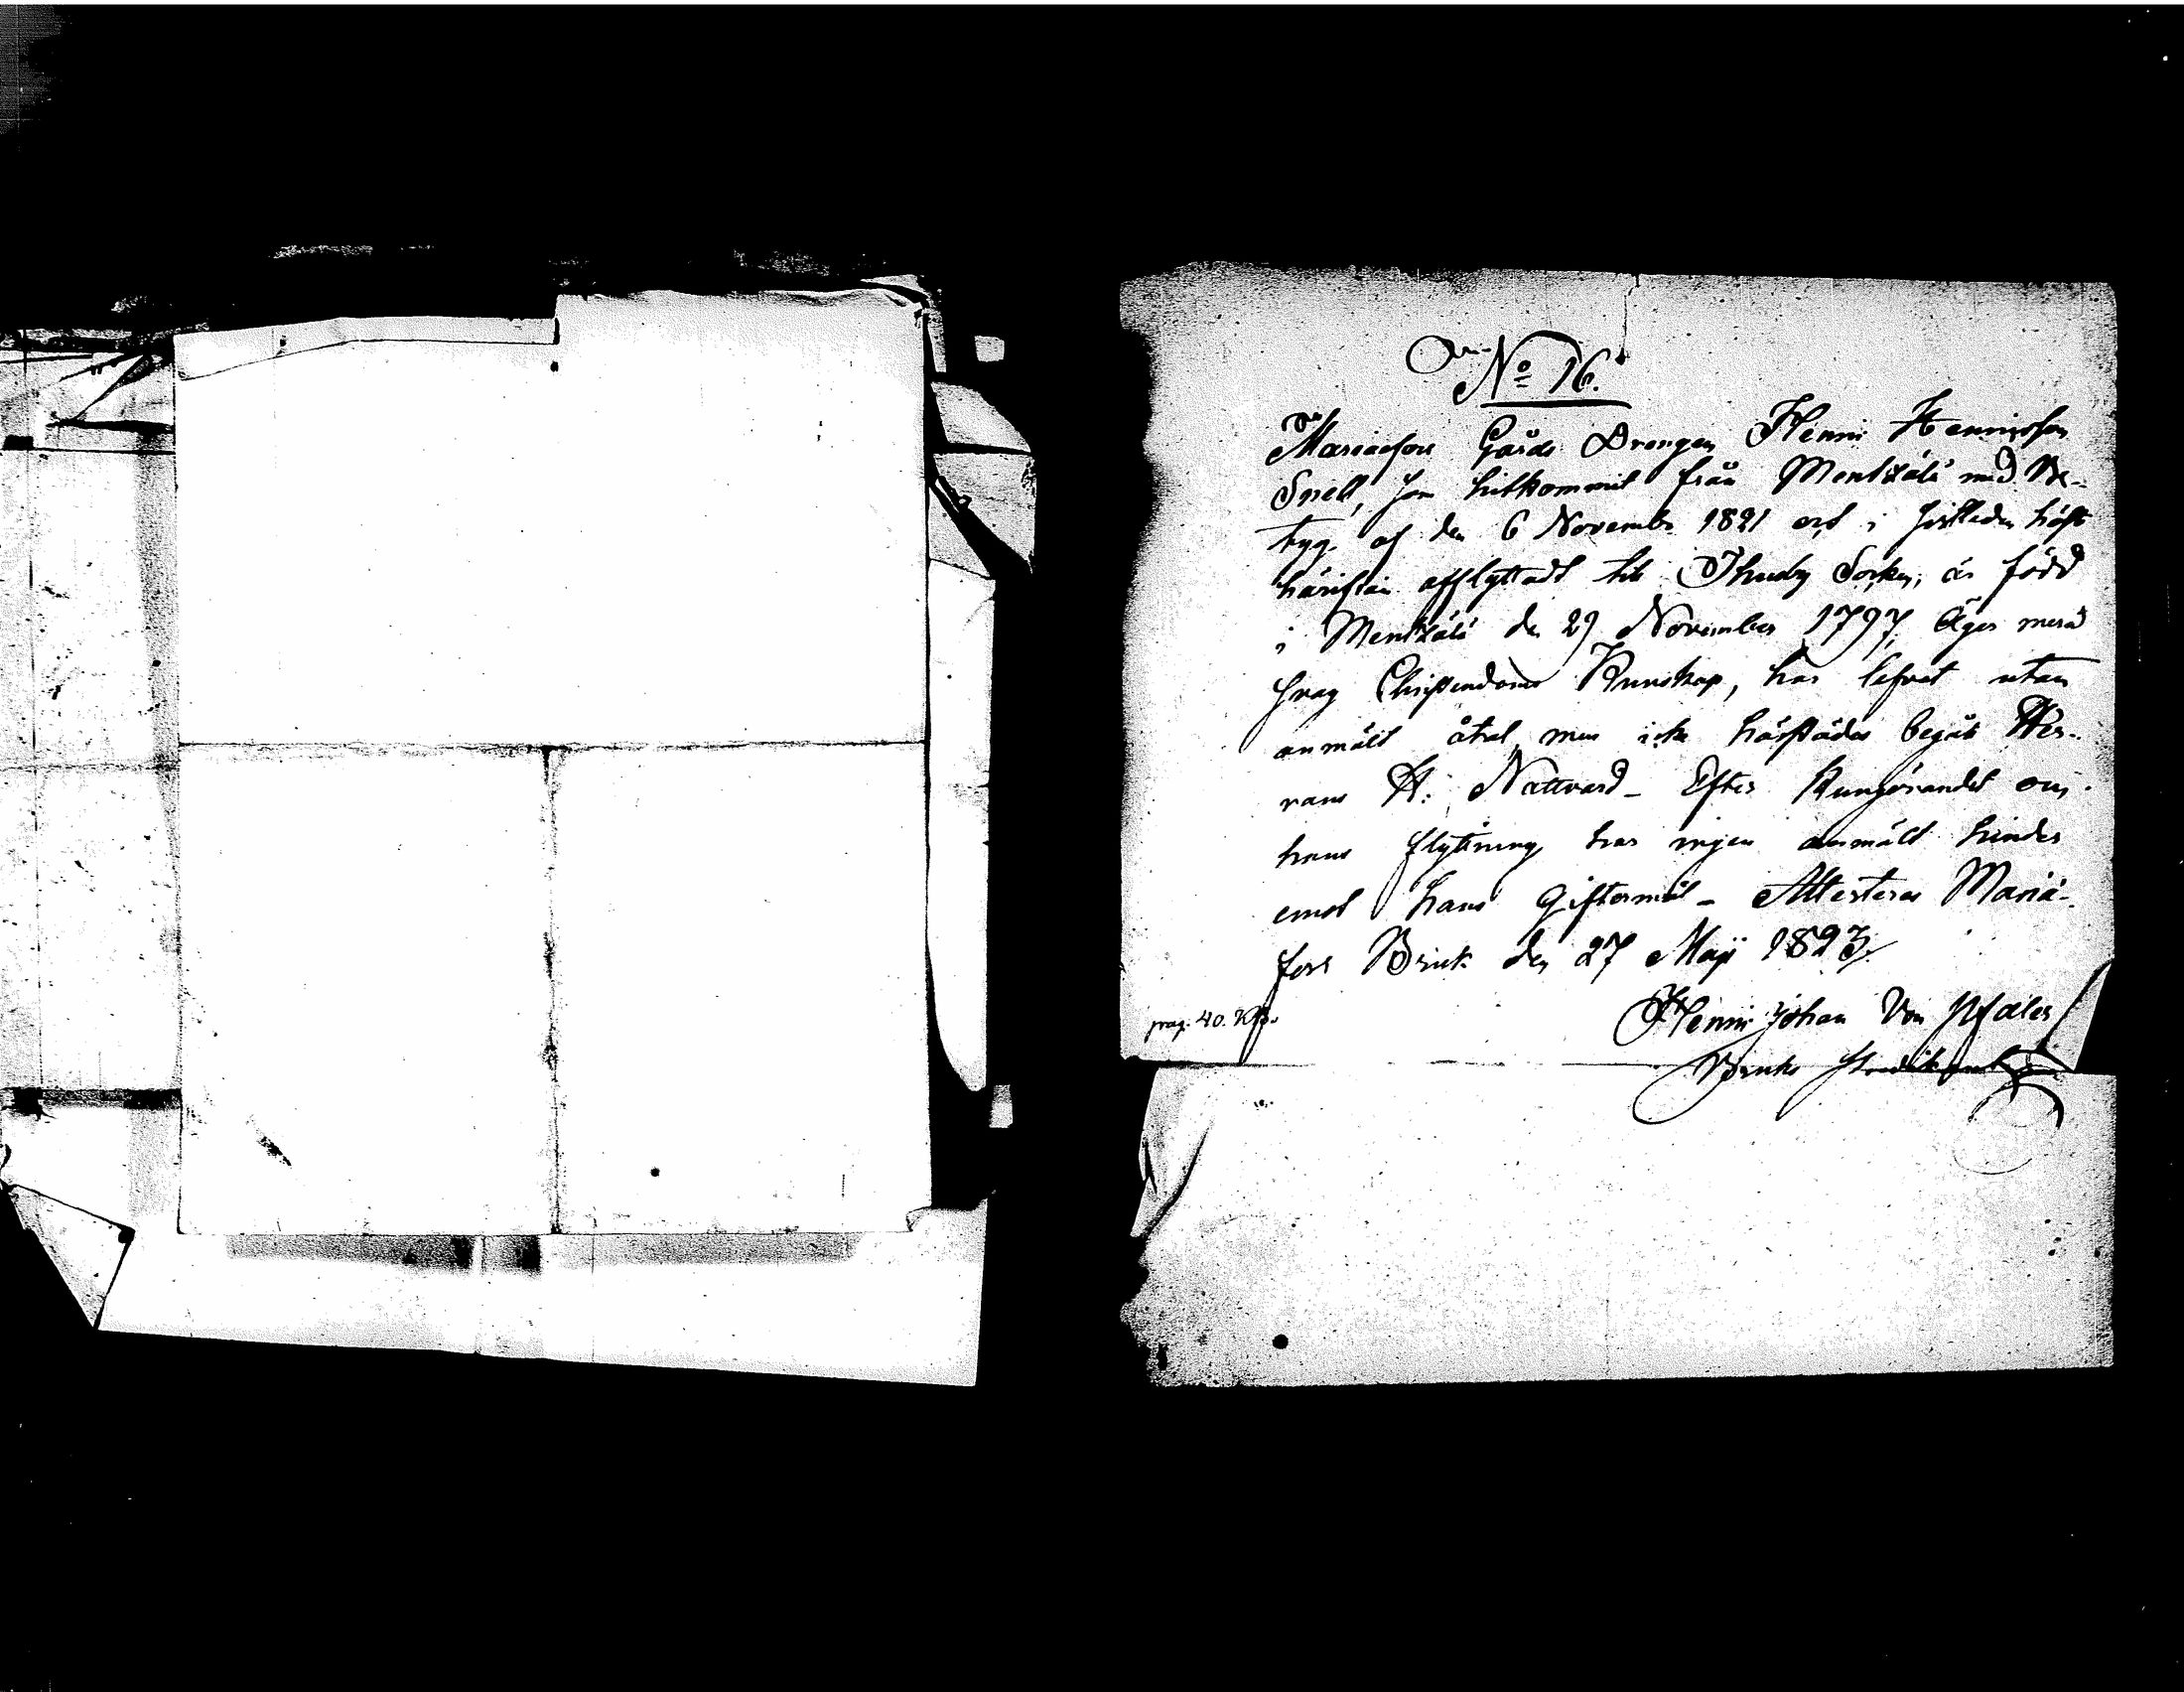 No 16.
Mariæfors Gårds Drengen Henric Henricsson
Snell, som hitkommit från Mentzälä med Be-
tyg af den 6 November 1821 och i sistleden höst
härifrån afflyttadt till Thusby Socken, är född
i Mentzälä den 29 November 1797, Äger mera
svag Christendoms Kunskap, har lefvat utan
anmält åtal, men icke härstädes begått Her-
rans H: Nattvard - Efter Kungörandet om
hans flyttning har ingen anmält hinder
emot hans Giftermål - Attesteras Mariæ-
fors Bruk den 27 Maji 1823.
Henric Johan Von Pfaler
Bruks Predikant
pag. 40.